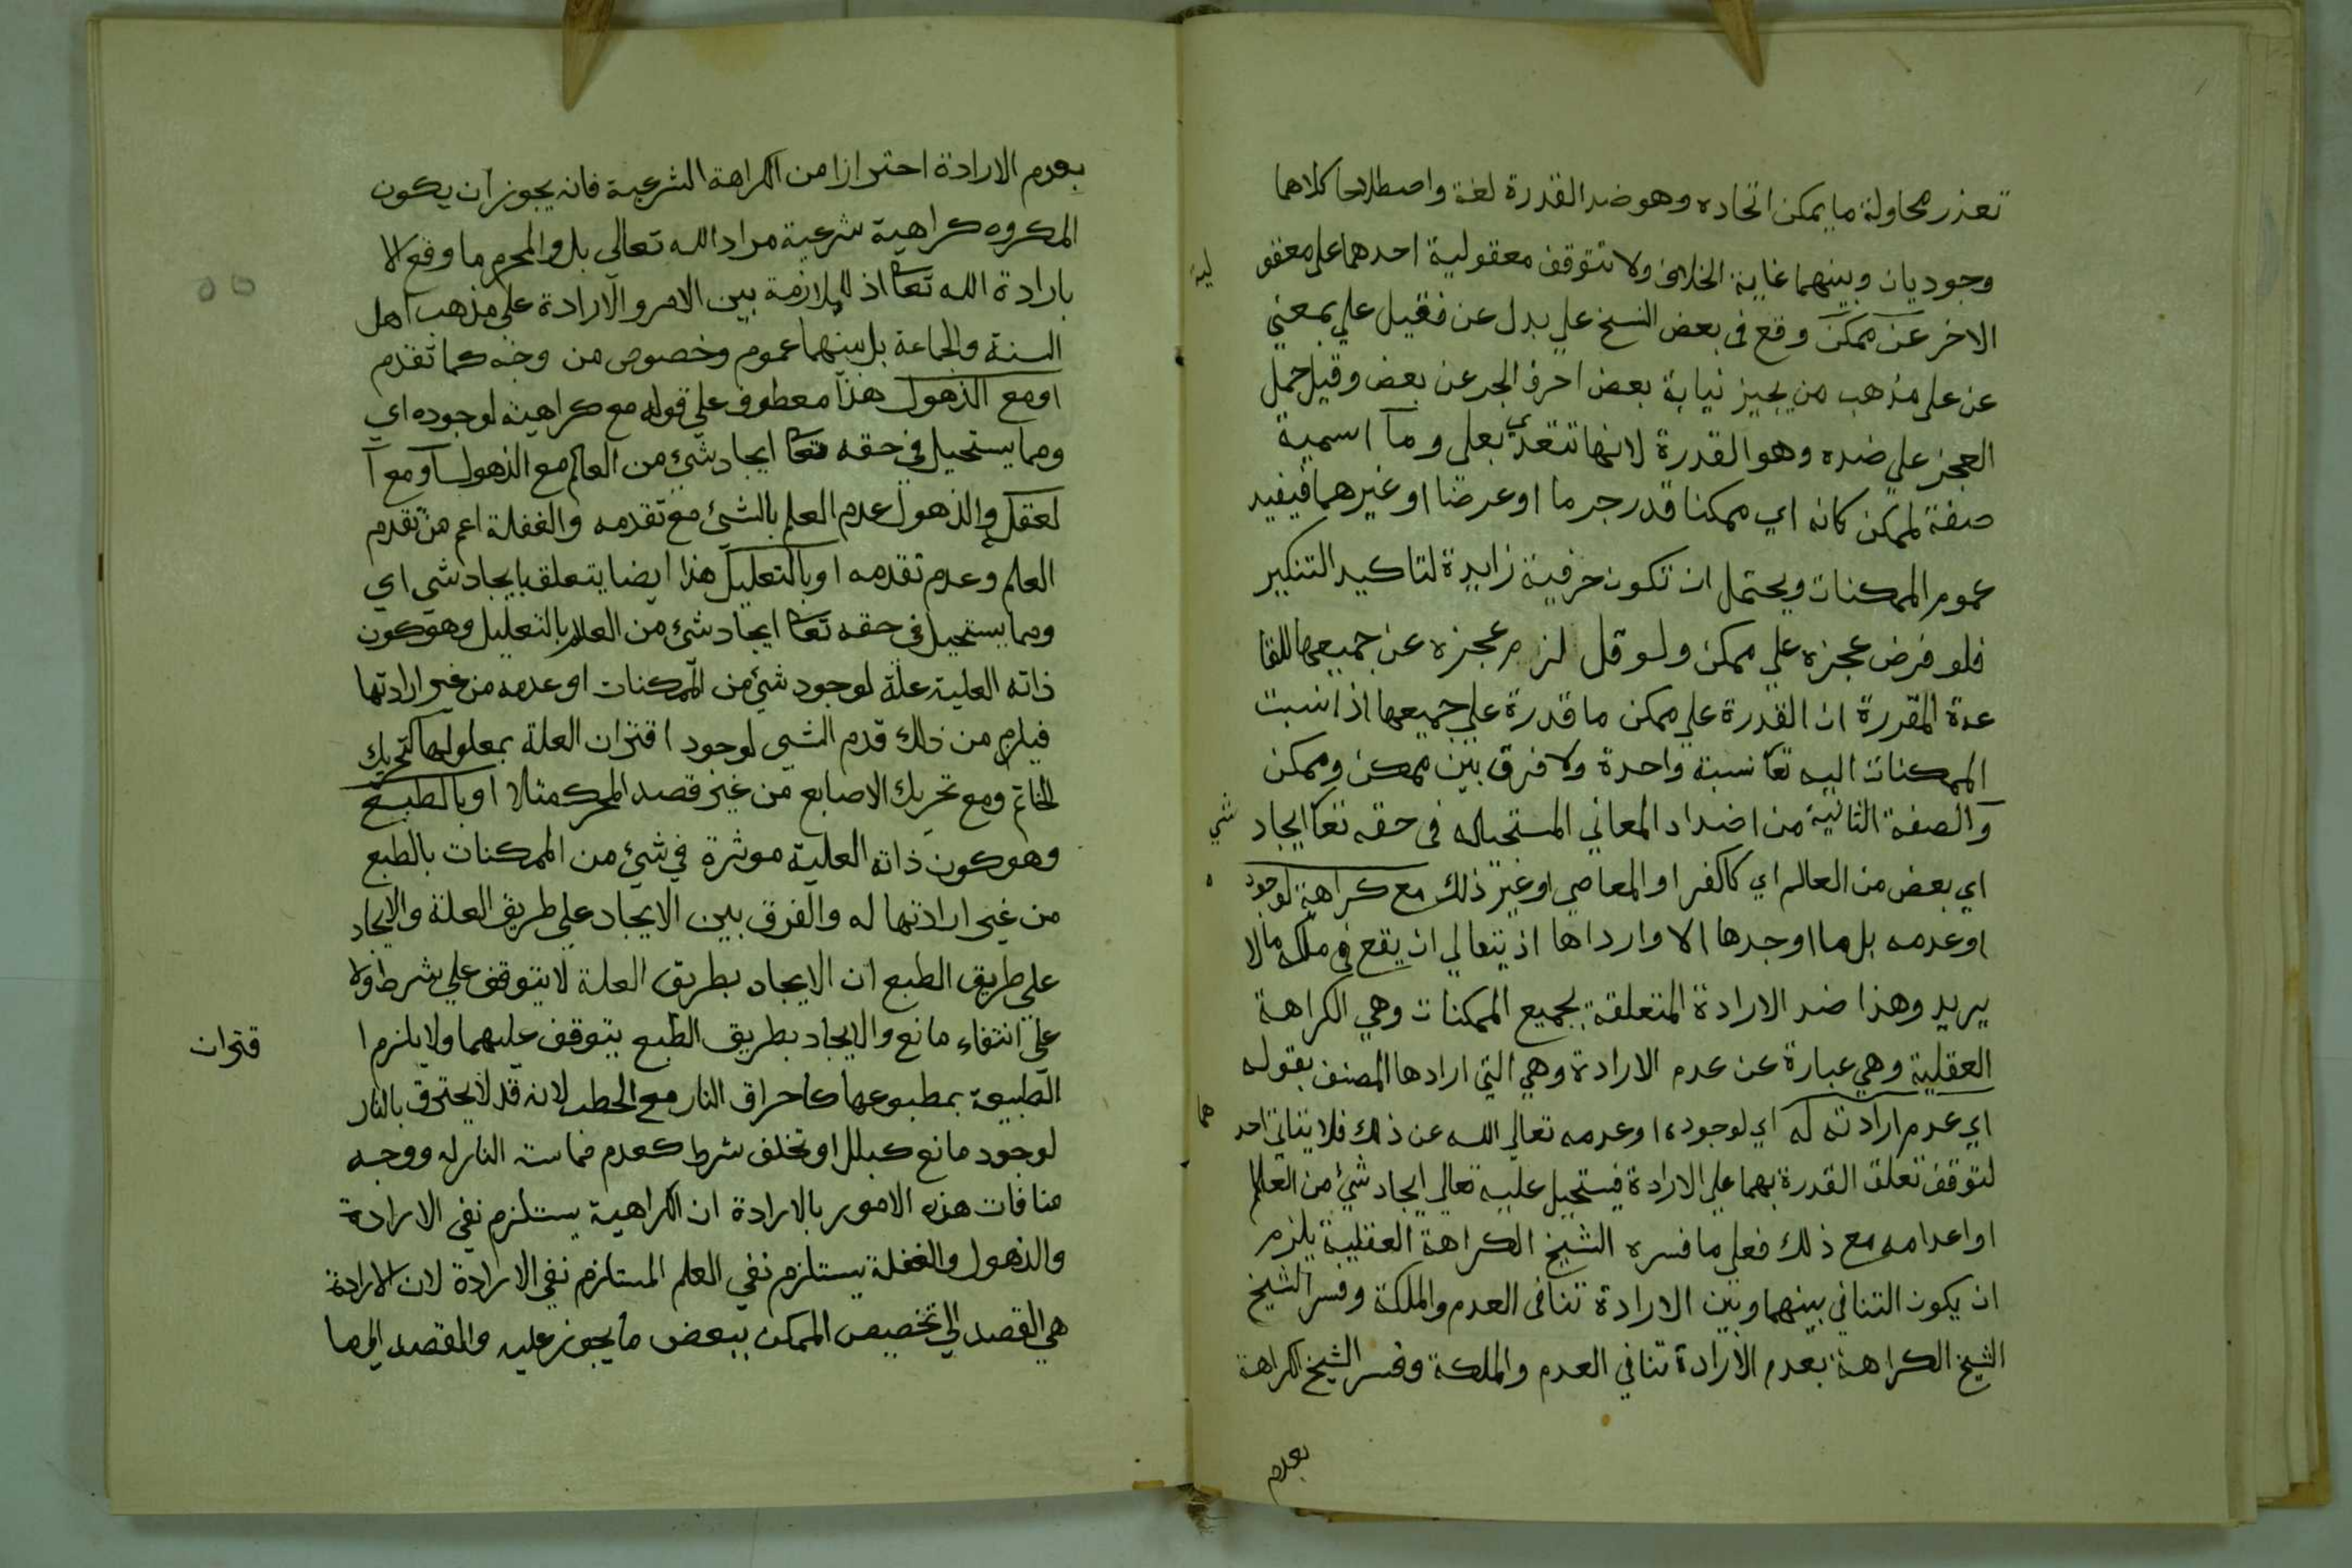 تعذر محاولة ما يمكن اتحاده وهو ضد القدرة لغة واصطلاحا كلاهما
وجوديان وبينهما غاية الخلاف ولا تتوقف معقولية احدهما على معقو
لية
الاخر عن ممكن وقع في بعض النسخ علي بدل عن فقيل علي بمعني
عن على مذهب من يجيز نيابة بعض احرف الجر عن بعض وقيل حمل
العجز علي ضده وهو القدرة لانها تتعدي بعلى وما اسمية
صفة لممكن كانه اي ممكنا قدر جرما او عرضا او غيرهما فيفيد
عموم الممكنات ويحتمل ان تكون حرفية زايدة لتاكيد التنكير
فلو فرض عجزه علي ممكن ولو قل لزم عجزه عن جميعها للقا
عدة المقررة ان القدرة علي ممكن ما قدرة علي جميعها اذ نسبت
الممكنات اليه تعا نسبة واحدة ولا فرق بين ممكن وممكن
والصفة الثانية من اضداد المعاني المستحيله في حقه تعا ايجاد
شي
اي بعض من العالم اي كالكفر او المعاصي او غير ذلك مع كراهة لوجود
ه
او عدمه بل ما اوجدها الا وارداها اذ يتعالي ان يقع في ملكه ما لا
يريد وهذا ضد الارادة المتعلقة بجميع الممكنات وهي الكراهة
العقلية وهي عبارة عن عدم الارادة وهي التي ارادها المصنف بقوله
اي عدم ارادته له اي لوجوده او عدمه تعالي الله عن ذلك فلا يتاتي احد
هما
لتوقف تعلق القدرة بهما علي الارادة فيستحيل عليه تعالي ايجاد شئ من العالم
او اعدامه مع ذلك فعلي ما فسره الشيخ الكراهة العقلية يلزم
ان يكون التنافي بينهما وبين الارادة تنافى العدم والملكة وفسر الشيخ
الشيخ الكراهة بعدم الارادة تنافي العدم والملكة وفسر الشيخ الكراهة
بعدم
بعدم الارادة احترازا من الكراهة الشرعية فانه يجوز ان يكون
المكروه كراهية شرعية مراد الله تعالى بل والمحرم ما وقع الا
بارادة الله تعا اذ لا ملازمة بين الامر والارادة على مذهب اهل
السنة والجماعة بل بينهما عموم وخصوص من وجه كما تقدم
او مع الذهول هذا معطوف علي قوله مع كراهيته لوجوده اي
ومما يستحيل في حقه تعا ايجاد شئ من العالم مع الذهول او مع ا
لعقل والذهول عدم العلم بالشئ مع تقدمه والغفلة اعم من تقدم
العلم وعدم تقدمه او بالتعليل هذا ايضا يتعلق بايجاد شي اي
ومما يستحيل في حقه تعا ايجاد شئ من العالم بالتعليل وهو كون
ذاته العلية علة لوجود شئ من الممكنات او عدمه من غير ارادتها
فيلزم من ذلك قدم الشي لوجود اقتران العلة بمعلولها كتحريك
الخاتم ومع تحريك الاصابع من غير قصد المحرك مثالا او بالطبع
وهو كون ذاته العلية موثرة في شئ من الممكنات بالطبع
من غير ارادتها له والفرق بين الايجاد علي طريق العلة والايجاد
علي طريق الطبع ان الايجاد بطريق العلة لا يتوقف علي شرط ولا
علي انتفاء مانع والايجاد بطريق الطبع يتوقف عليهما ولا يلزم ا
قتران
الطبيعة بمطبوعها كاحراق النار مع الحطب لانه قد لا يحترق بالنار
لوجود مانع كبلل او تخلف شرط كعدم مماسته النار له ووجه
منافات هذه الامور بالارادة ان الكراهية يستلزم نفي الارادة
والذهول والغفلة يستلزم نفي العلم المستلزم نفي الارادة لان الارادة
هي القصد الي تخصيص الممكن ببعض ما يجوز عليه والقصد الي ما